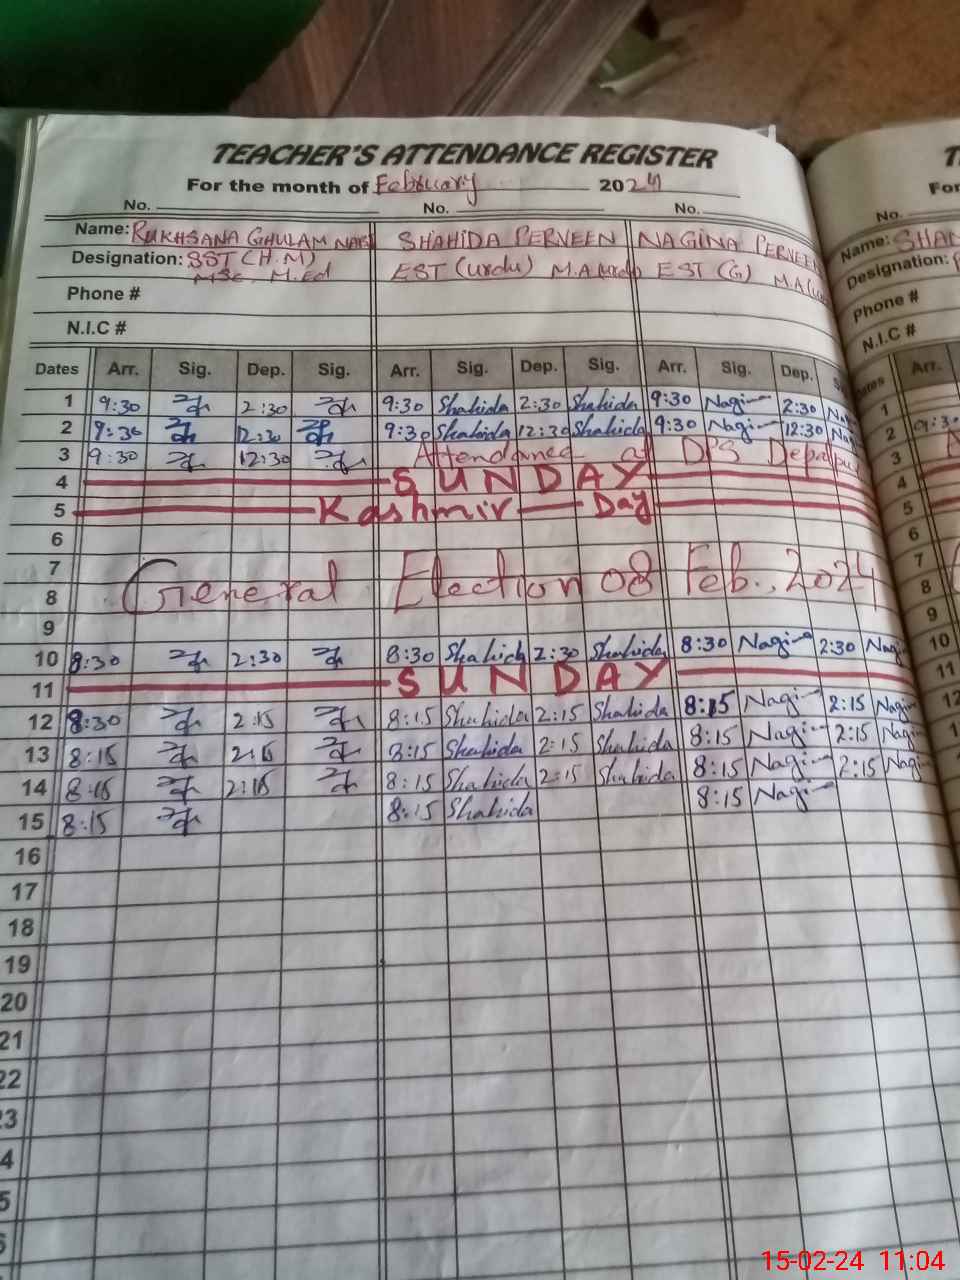 TEACHER'S ATTENDANCE REGISTER
For the month of February 2024
No. No. No. No.
Name: RUKHSANA GHULAM NABI SHAHIDA PERVEEN NAGINA PERVEEN Name: SHAN
Designation: SST (H.M) EST (urdu) M.A (urdu) EST (G) M.A (u Designation:
MSc. M.Ed
Phone # Phone #
N.I.C # N.I.C #
Dates Arr. Sig. Dep. Sig. Arr. Sig. Dep. Sig. Arr. Sig. Dep. S Dates Arr.
1 9:30 2:30 9:30 Shahida 2:30 Shahida 9:30 Nagina 2:30 Na 1
2 9:30 12:30 9:30 Shahida 12:30 Shahida 9:30 Nagina 12:30 Na 2 9:30
3 9:30 12:30 Attendance at DPS Depalpur 3
4 SUNDAY 4
5 Kashmir Day 5
6 6
7 7
8 General Election 08 Feb. 2024 8
9 9
10 8:30 2:30 8:30 Shahida 2:30 Shahida 8:30 Nagina 2:30 Nagi 10
11 SUNDAY 11
12 8:30 2:15 8:15 Shahida 2:15 Shahida 8:15 Nagina 2:15 Nagi 12
13 8:15 2:15 8:15 Shahida 2:15 Shahida 8:15 Nagina 2:15 Nagi
14 8:15 2:15 8:15 Shahida 2:15 Shahida 8:15 Nagina 2:15 Nagi
15 8:15 8:15 Shahida 8:15 Nagina
16
17
18
19
20
21
22
23
4
5
6
15-02-24 11:04